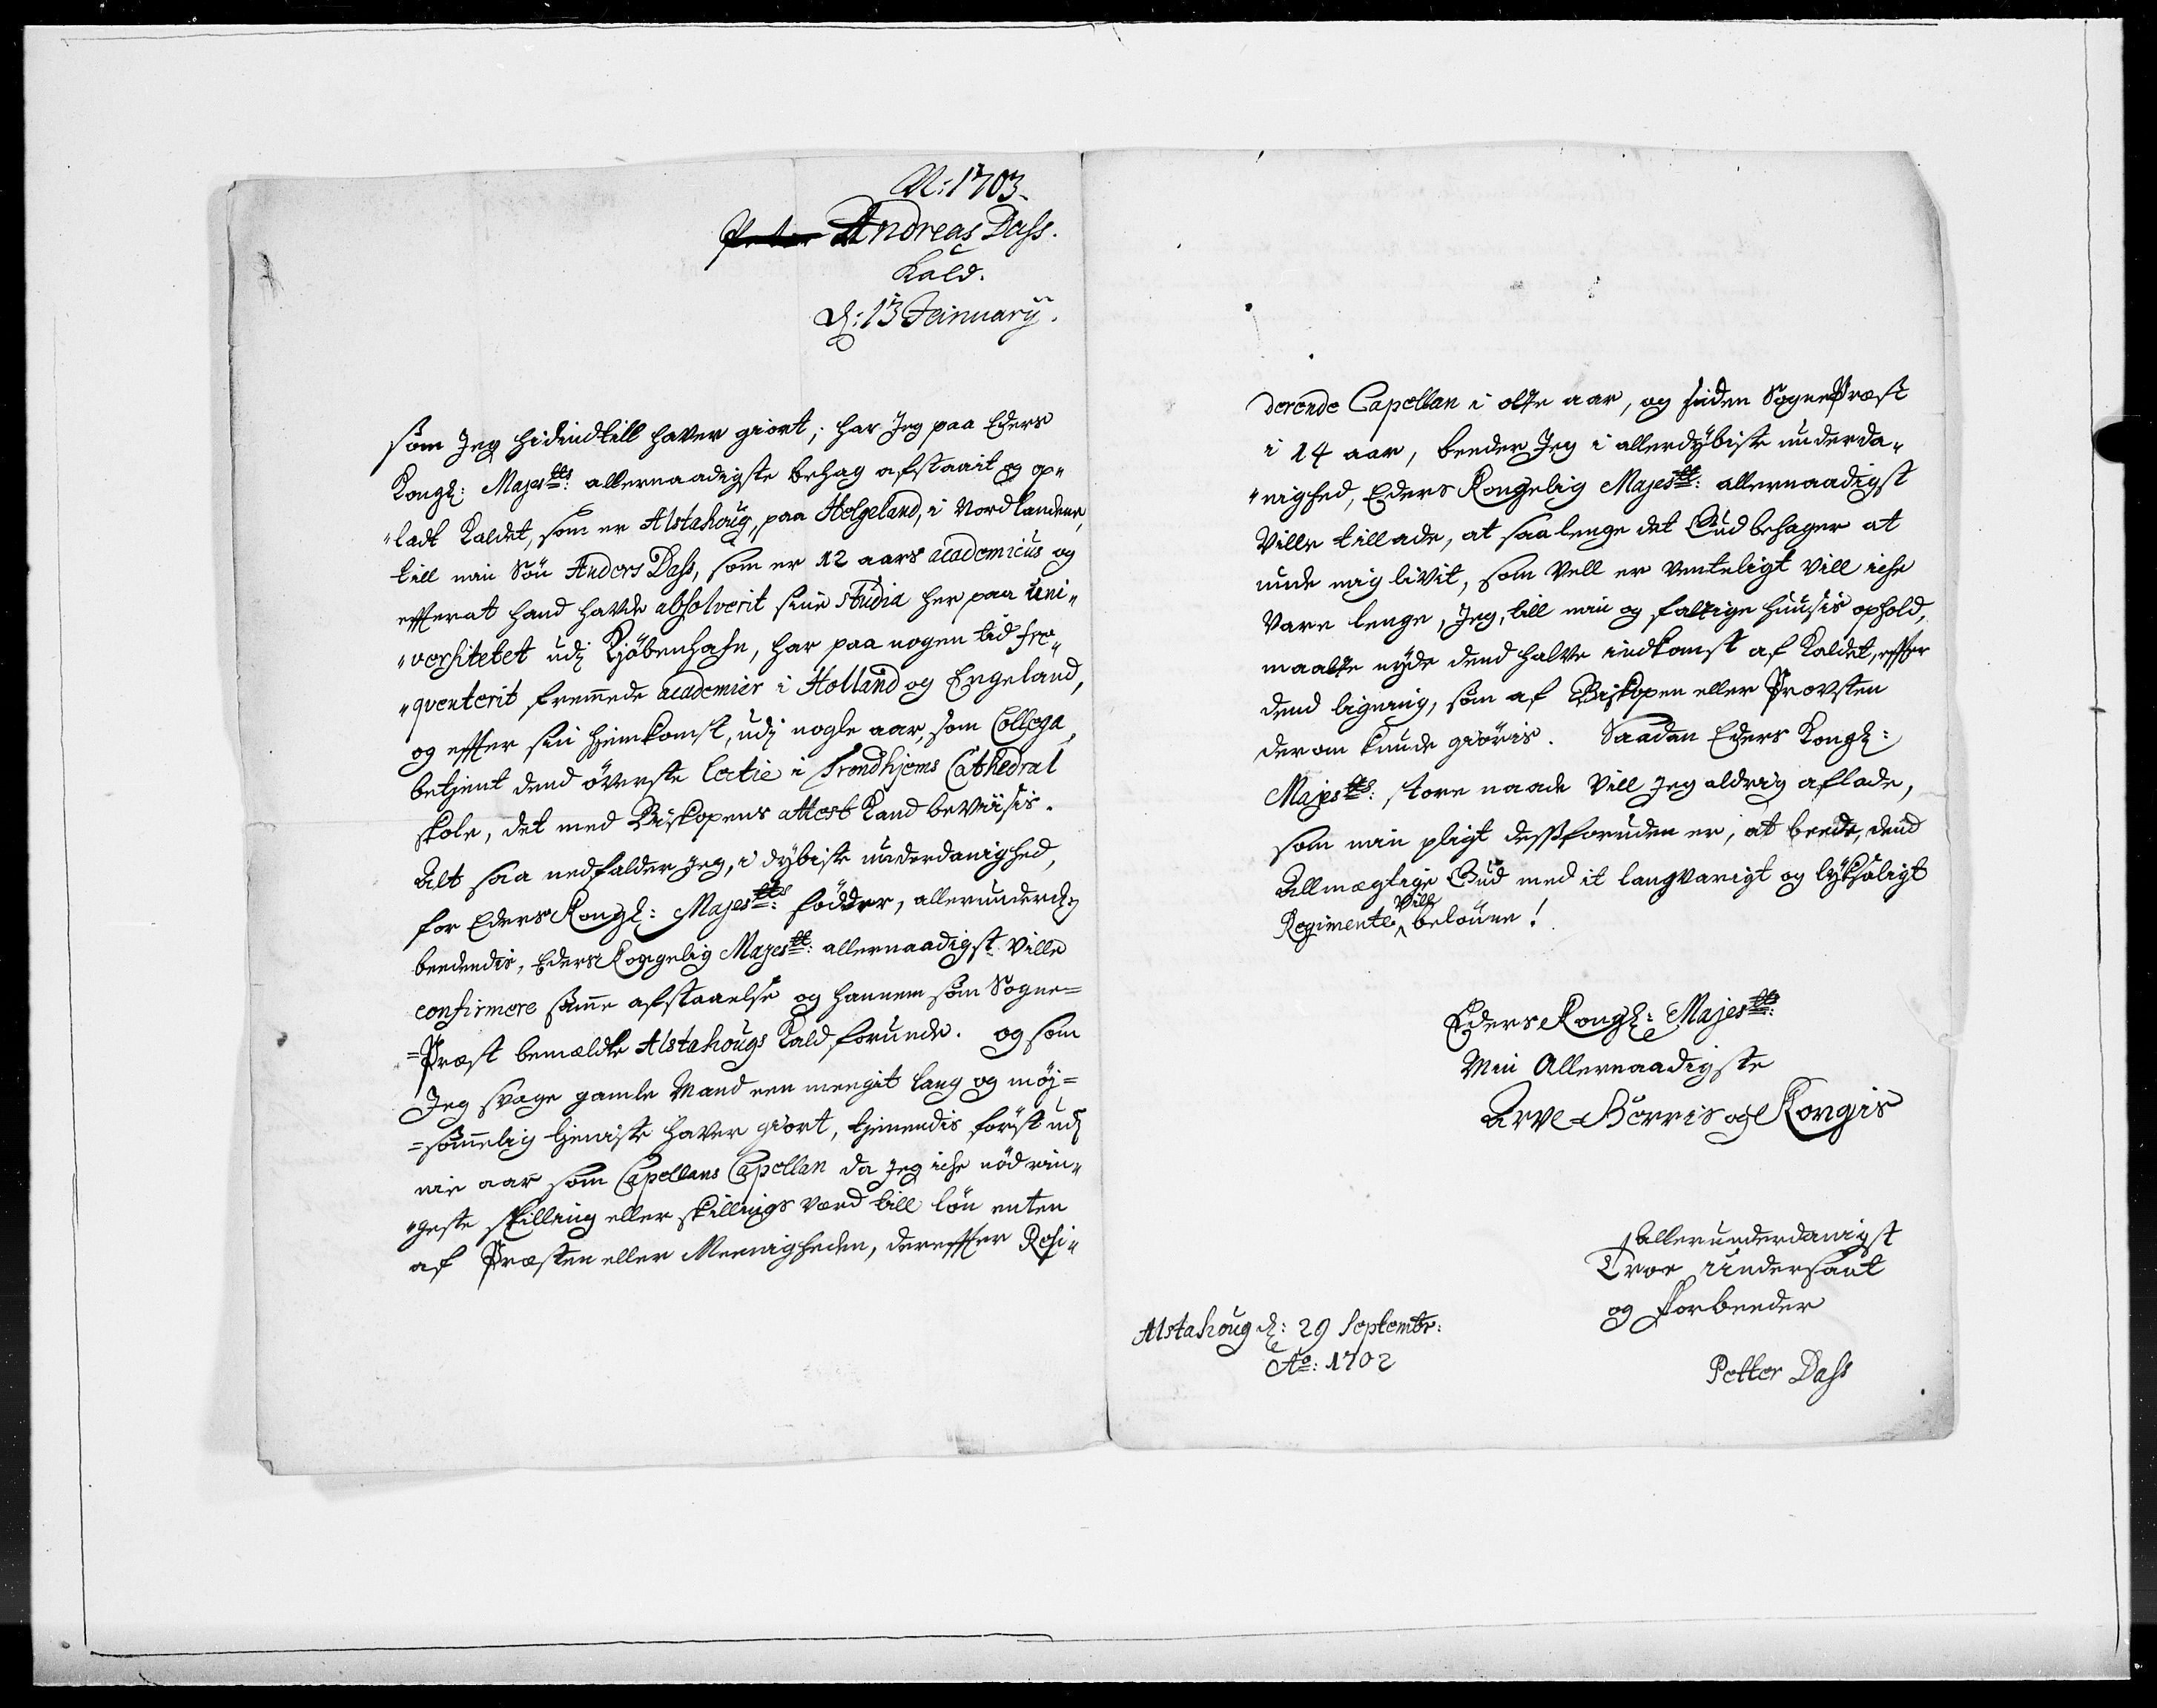 N: 1703.
Andreas Dass.
Kald.
d: 13 January.
som Jeg hidindtill haver giort; har Jeg paa Eders
Kongl: Majestts: allernaadigste behag afstaait og op„
„ladt Kaldet, som er Alstahoug, paa Helgeland, i Nordlandene,
till min Søn Anders Dass, som er 12 aars academicus og
effterat hand havde absolverit sine studia her paa uni„
„versitetet udj Kjøbenhafn, har paa nogen tid fre„
„qventerit fremmede academier i Holland og Engeland,
og effter sin hjemkomst, udj nogle aar, som Collega,
betjent dend överste lectie i Trondhjems Cathedral
skole, det med Biskopens attest kand beviisis.
Alt saa nedfalder Jeg, i dybiste underdanighed,
for Eders Kongl: Majestts: födder, allerunderd:
beedendis, Eders Kongelig Majestt: allernaadigst ville
confirmere samme afstaaelse og hannem som Sogne=
=Præst bemældte Alstahougs Kald forunde. og som
Jeg svage gamle Mand een meegit lang og möj=
=sommelig tjeniste haver giort, tjenendis först udj
nie aar som Capellans Capellan da Jeg iche nød rin„
„geste skilling eller skillings værd till løn enten
af Præsten eller Meenigheden, dereffter Resi„
derende Capellan i otte aar, og siden SognePræst
i 14 aar, beeder Jeg i allerdybiste underda„
„nighed, Eders Kongelig Majestt: allernaadigst
Ville tillade, at saa lenge det Gud behager at
unde mig livit, som vell er venteligt vill iche
vare lenge, Jeg, till min og fattige huusis ophold,
maatte nyde dend halve indkomst af Kaldet, effter
dend ligning, som af Biskopen eller Provsten
derom kunde giöris. Saadan Eders Kongl:
Majestts: store naade vill Jeg aldrig aflade,
som min pligt dessforuden er, at beede, dend
Allmægtige Gud med it langvarigt og lyksaligt
Regimente vill belönne!
Eders Kongl: Majestts:
Min Allernaadigste
Arve-Herris og Kongis
Allerunderdanigst
Troe Undersaat
og Forbeeder
Petter Dass
Alstahoug d: 29 Septembr:
Ao: 1702